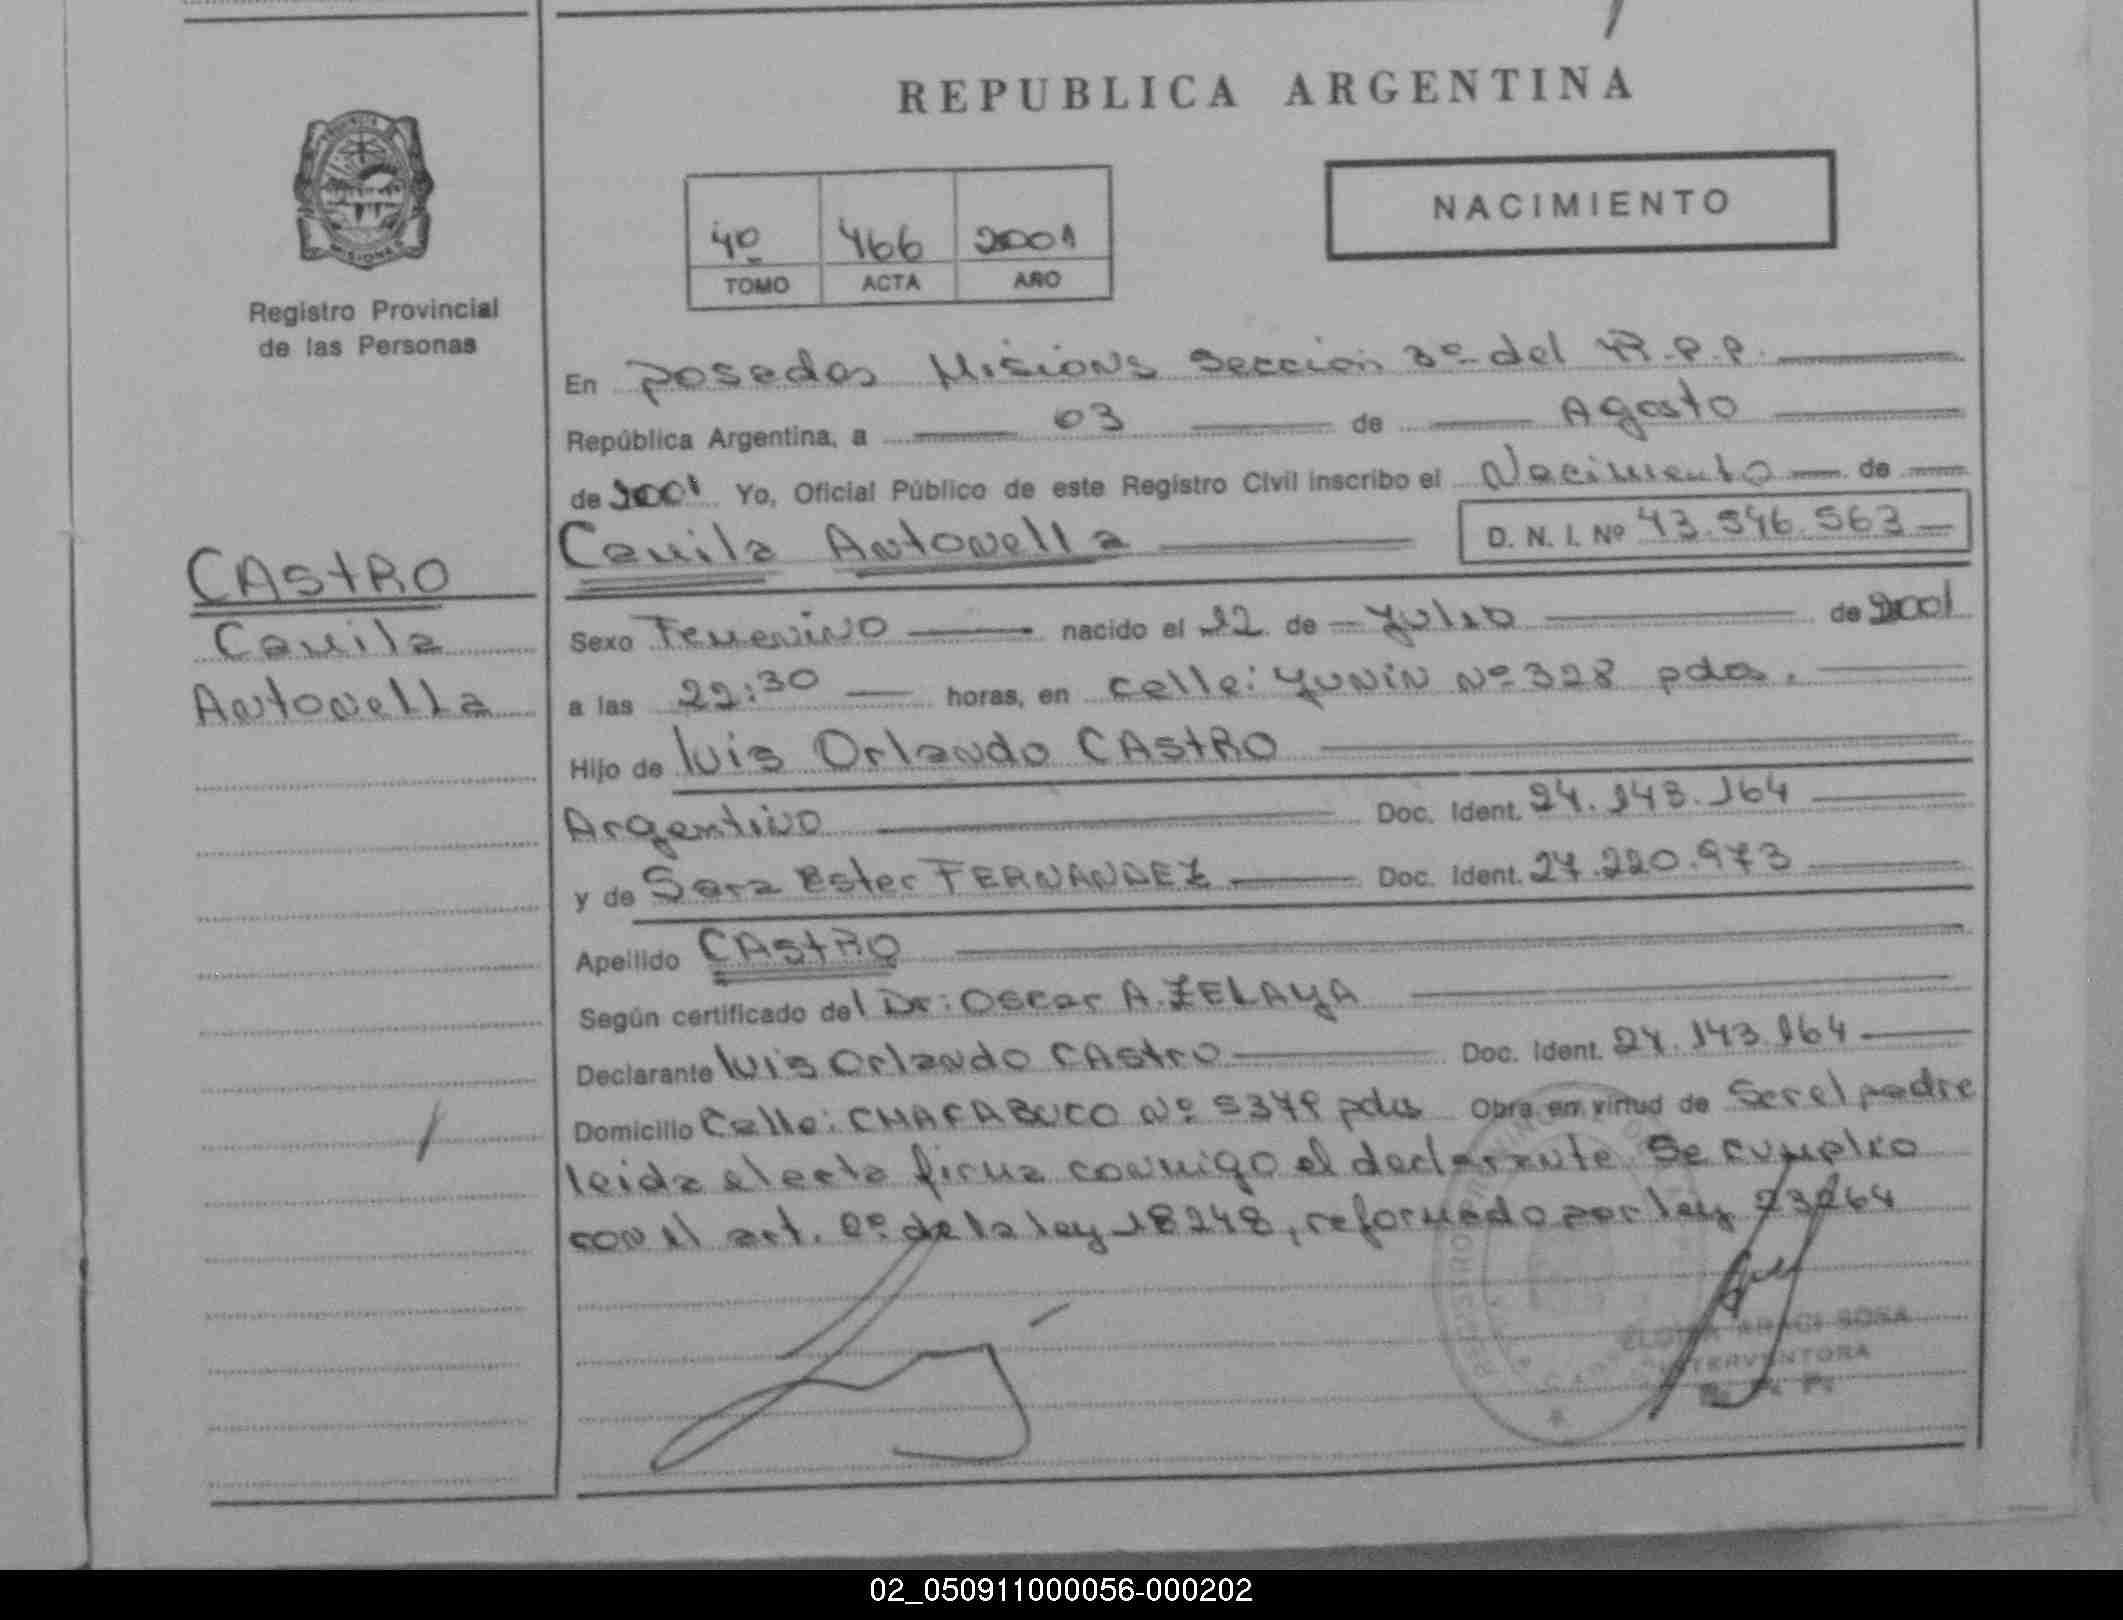 REPUBLICA ARGENTINA
NACIMIENTO
4º 466 2001
TOMO ACTA AÑO
Registro Provincial
de las Personas
CAStRO
Camila
Antonella
En posadas Misions Seccion 3º del R.P.P.
República Argentina, a 03 de Agosto
de 2001 Yo, Oficial Público de este Registro Civil inscribo el Nacimiento de
Camila Antonella D. N. I. Nº 43.546.563
Sexo Femenino nacido el 22 de Julio de 2001
a las 22:30 horas, en calle: Junin Nº 328 pdas.
Hijo de luis Orlando CAStRO
Argentino Doc. Ident. 24.143.164
y de Sara Ester FERNANDEZ Doc. Ident. 27.220.973
Apellido CAStRO
Según certificado del Dr: Oscar A. ZELAYA
Declarante luis Orlando CAStro Doc. Ident. 24.143.164
Domicilio Calle: CHACABUCO Nº pdas Obra en virtud de Ser el padre
leida el acta firma conmigo el declarante. Se cumplio
con el art. de la ley 18248, reformado por ley 23264
ELOISA ARACI SOSA
INTERVENTORA
R. P. P.
02_050911000056-000202